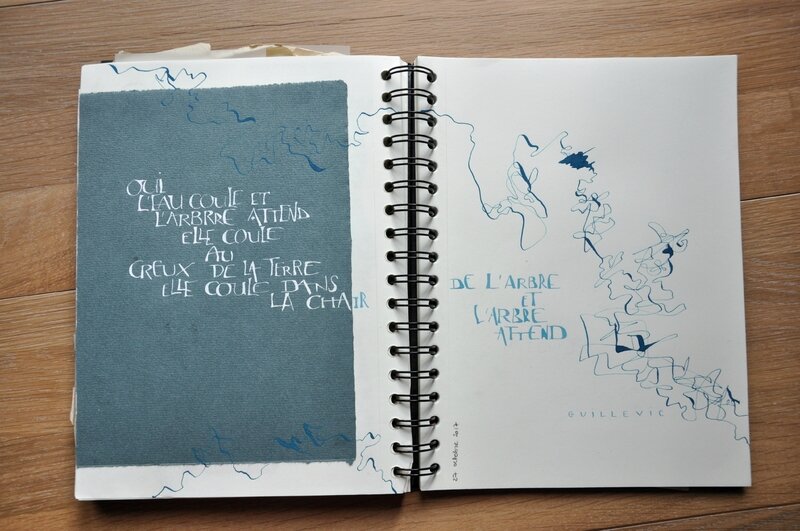 OUI
L'EAU COULE ET
L'ARBRRE ATTEND
ELLE COULE
AU
CREUX DE LA TERRE
ELLE COULE DANS
LA CHAIR
DE L'ARBRE
ET
L'ARBRE
ATTEND
GUILLEVIC
27 octobre 2017